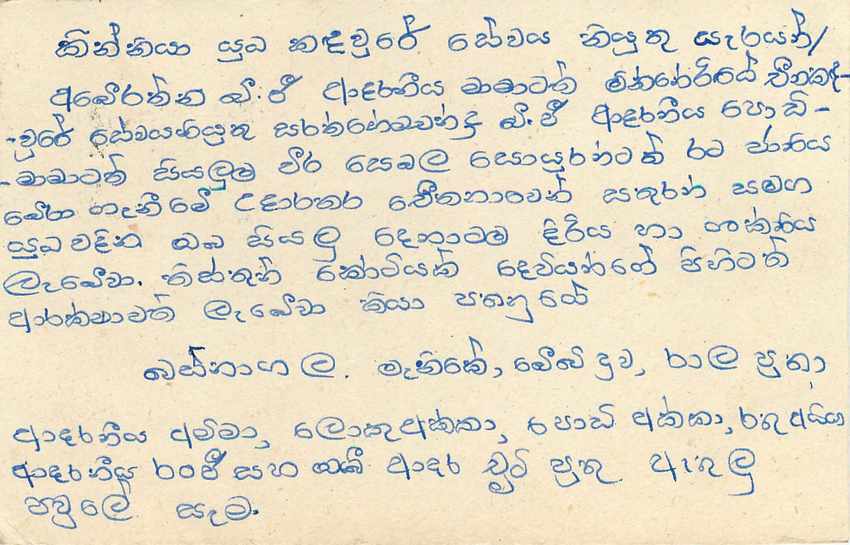 කින්නියා යුධ කඳවුරේ සේවය නියුතු සැරයන්/
අබේරත්න බී.ජී ආදරනීය මාමාටත් මින්නේරියේ චීනකඳ-
-වුරේ සේවයනියුතු සරත්හේමචන්ද්‍ර බී.ජී ආදරනීය පොඩි-
-මාමාටත් සියලුම වීර සෙබල සොයුරන්ටත් රට ජාතිය
බේරා ගැනීමේ උදාරතර චේතනාවෙන් සතුරන් සමග
යුධ වදින ඔබ සියලු දෙනාටම දිරිය හා ශක්තිය
ලැබේවා. තිස්තුන් කෝටියක් දෙවියන්ගේ පිහිටත්
ආරක්ෂාවත් ලැබේවා කියා පතනුයේ
බස්නාගල. මැනිකේ, බේබි දුව, රාල පුතා
ආදරනීය අම්මා, ලොකුඅක්කා, පොඩි අක්කා, රතු අයියා
ආදරනීය රංජි සහ ආදර චූටි පුතු ඇතුලු
පවුලේ සැම.